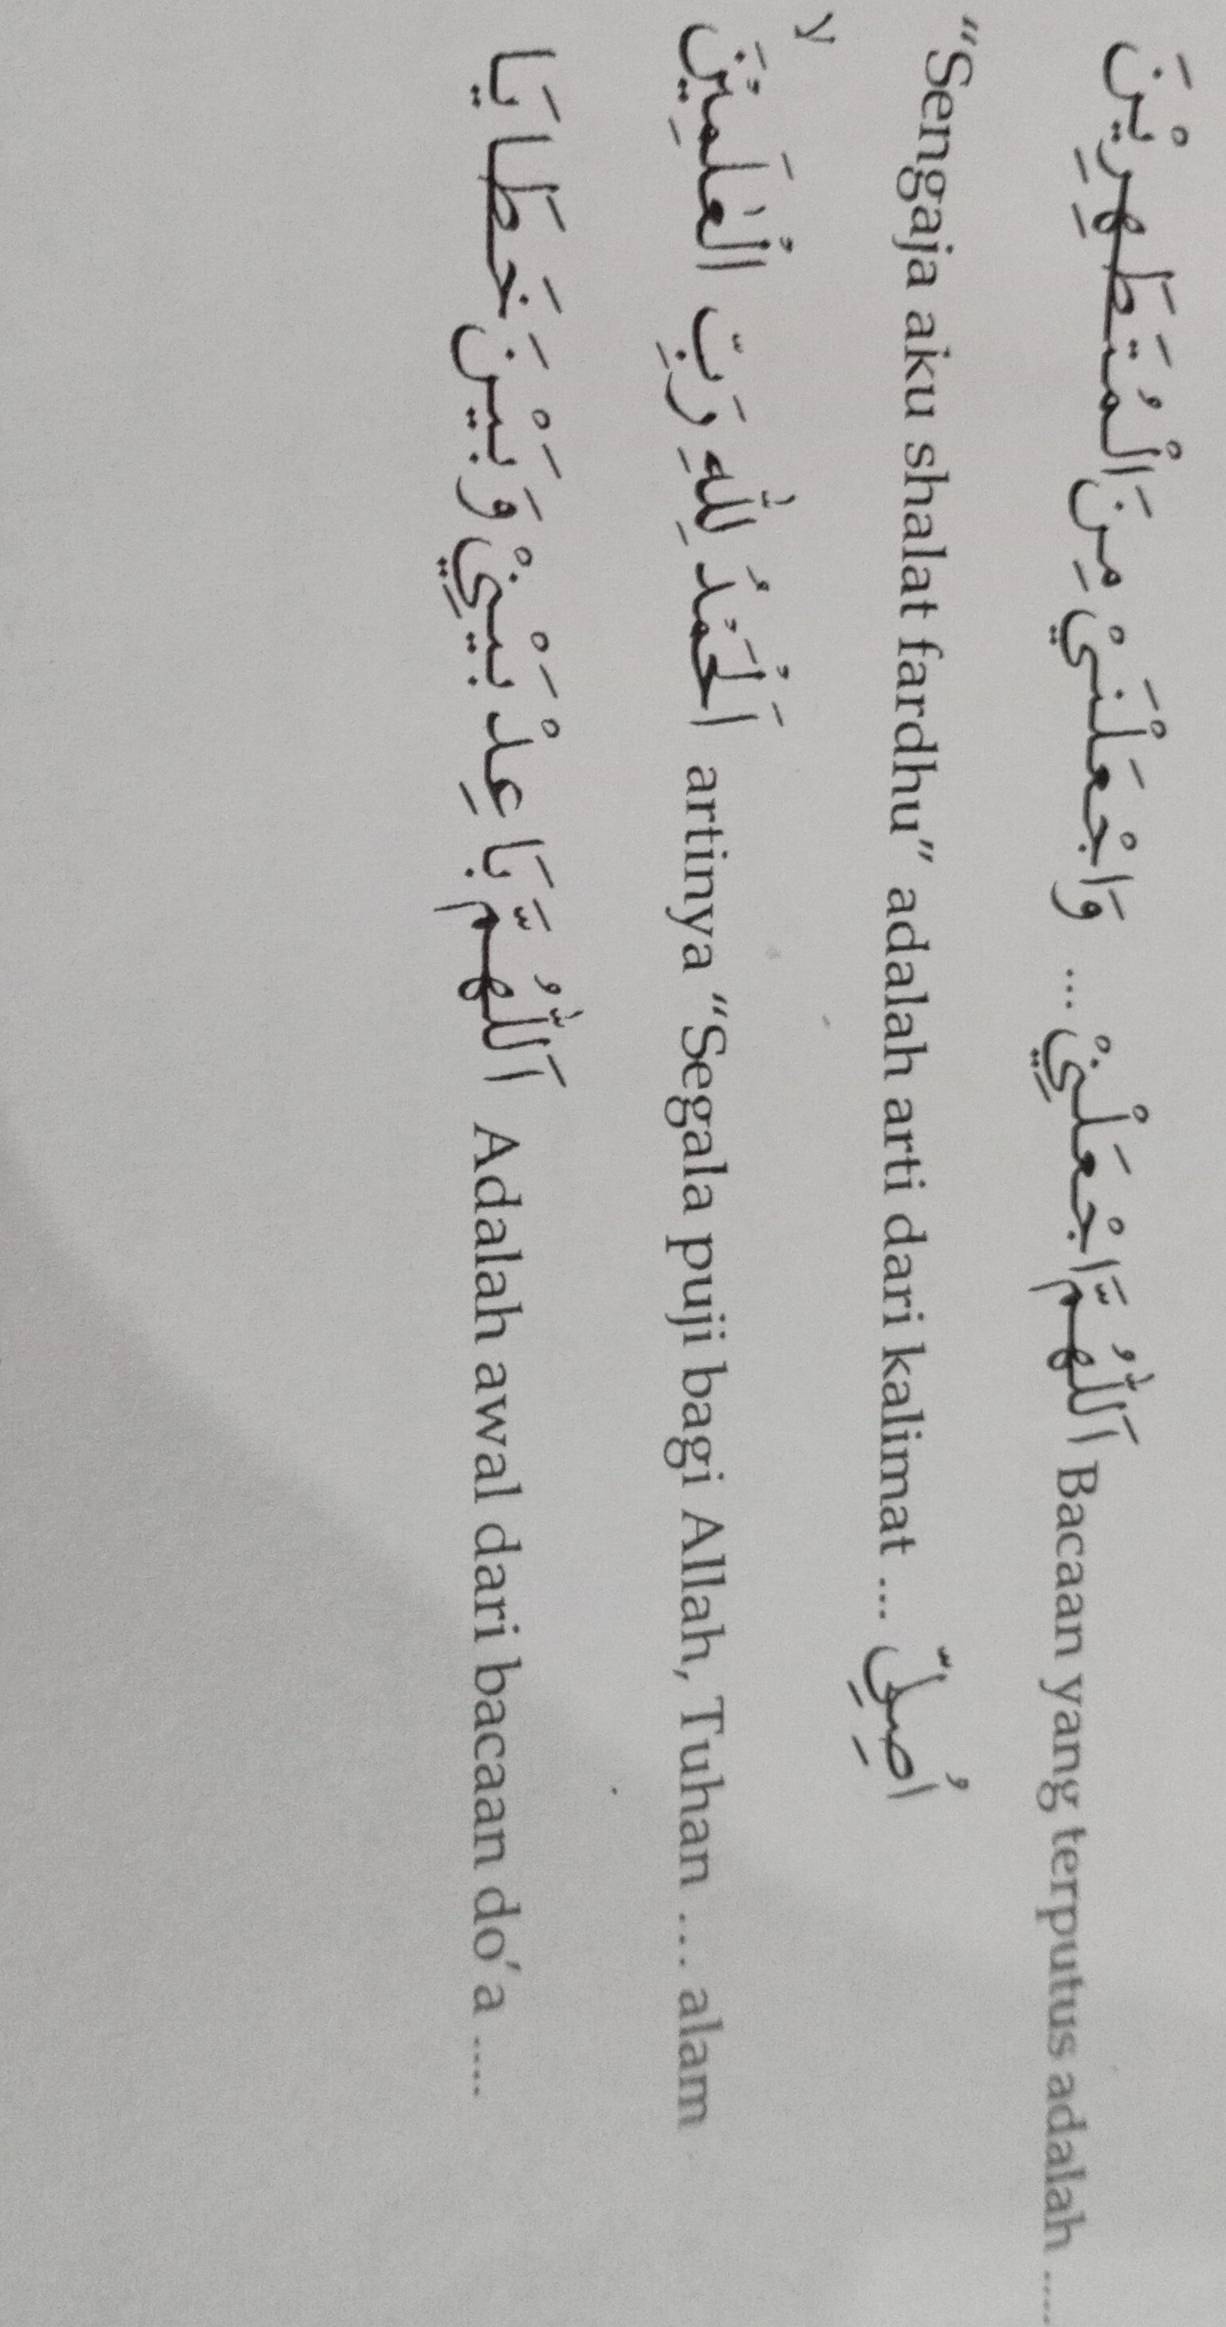 اَللّٰهُمَّ اجْعَلْنِيْ ... وَاجْعَلْنَيْ مِنَ الْمُتَطَهِرِيْنَ Bacaan yang terputus adalah .....
"Sengaja aku shalat fardhu" adalah arti dari kalimat ... اُصِلِّ
y
اَلْحَمْدُ لِلّٰهِ رَبِّ الْعٰلَمِيْنَ artinya "Segala puji bagi Allah, Tuhan ... alam
اَللّٰهُمَّ بَاعِدْ بَيْنِيْ وَبَيْنَ خَطَايَا Adalah awal dari bacaan do'a ....